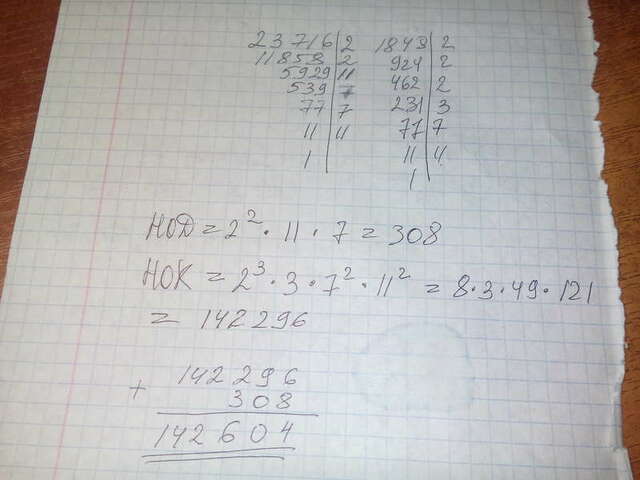 23716 | 2
11858 | 2
5929 | 11
539 | 7
77 | 7
11 | 11
1
1848 | 2
924 | 2
462 | 2
231 | 3
77 | 7
11 | 11
1
НОД = 2² · 11 · 7 = 308
НОК = 2³ · 3 · 7² · 11² = 8·3·49·121
= 142296
142296
+ 308
142604